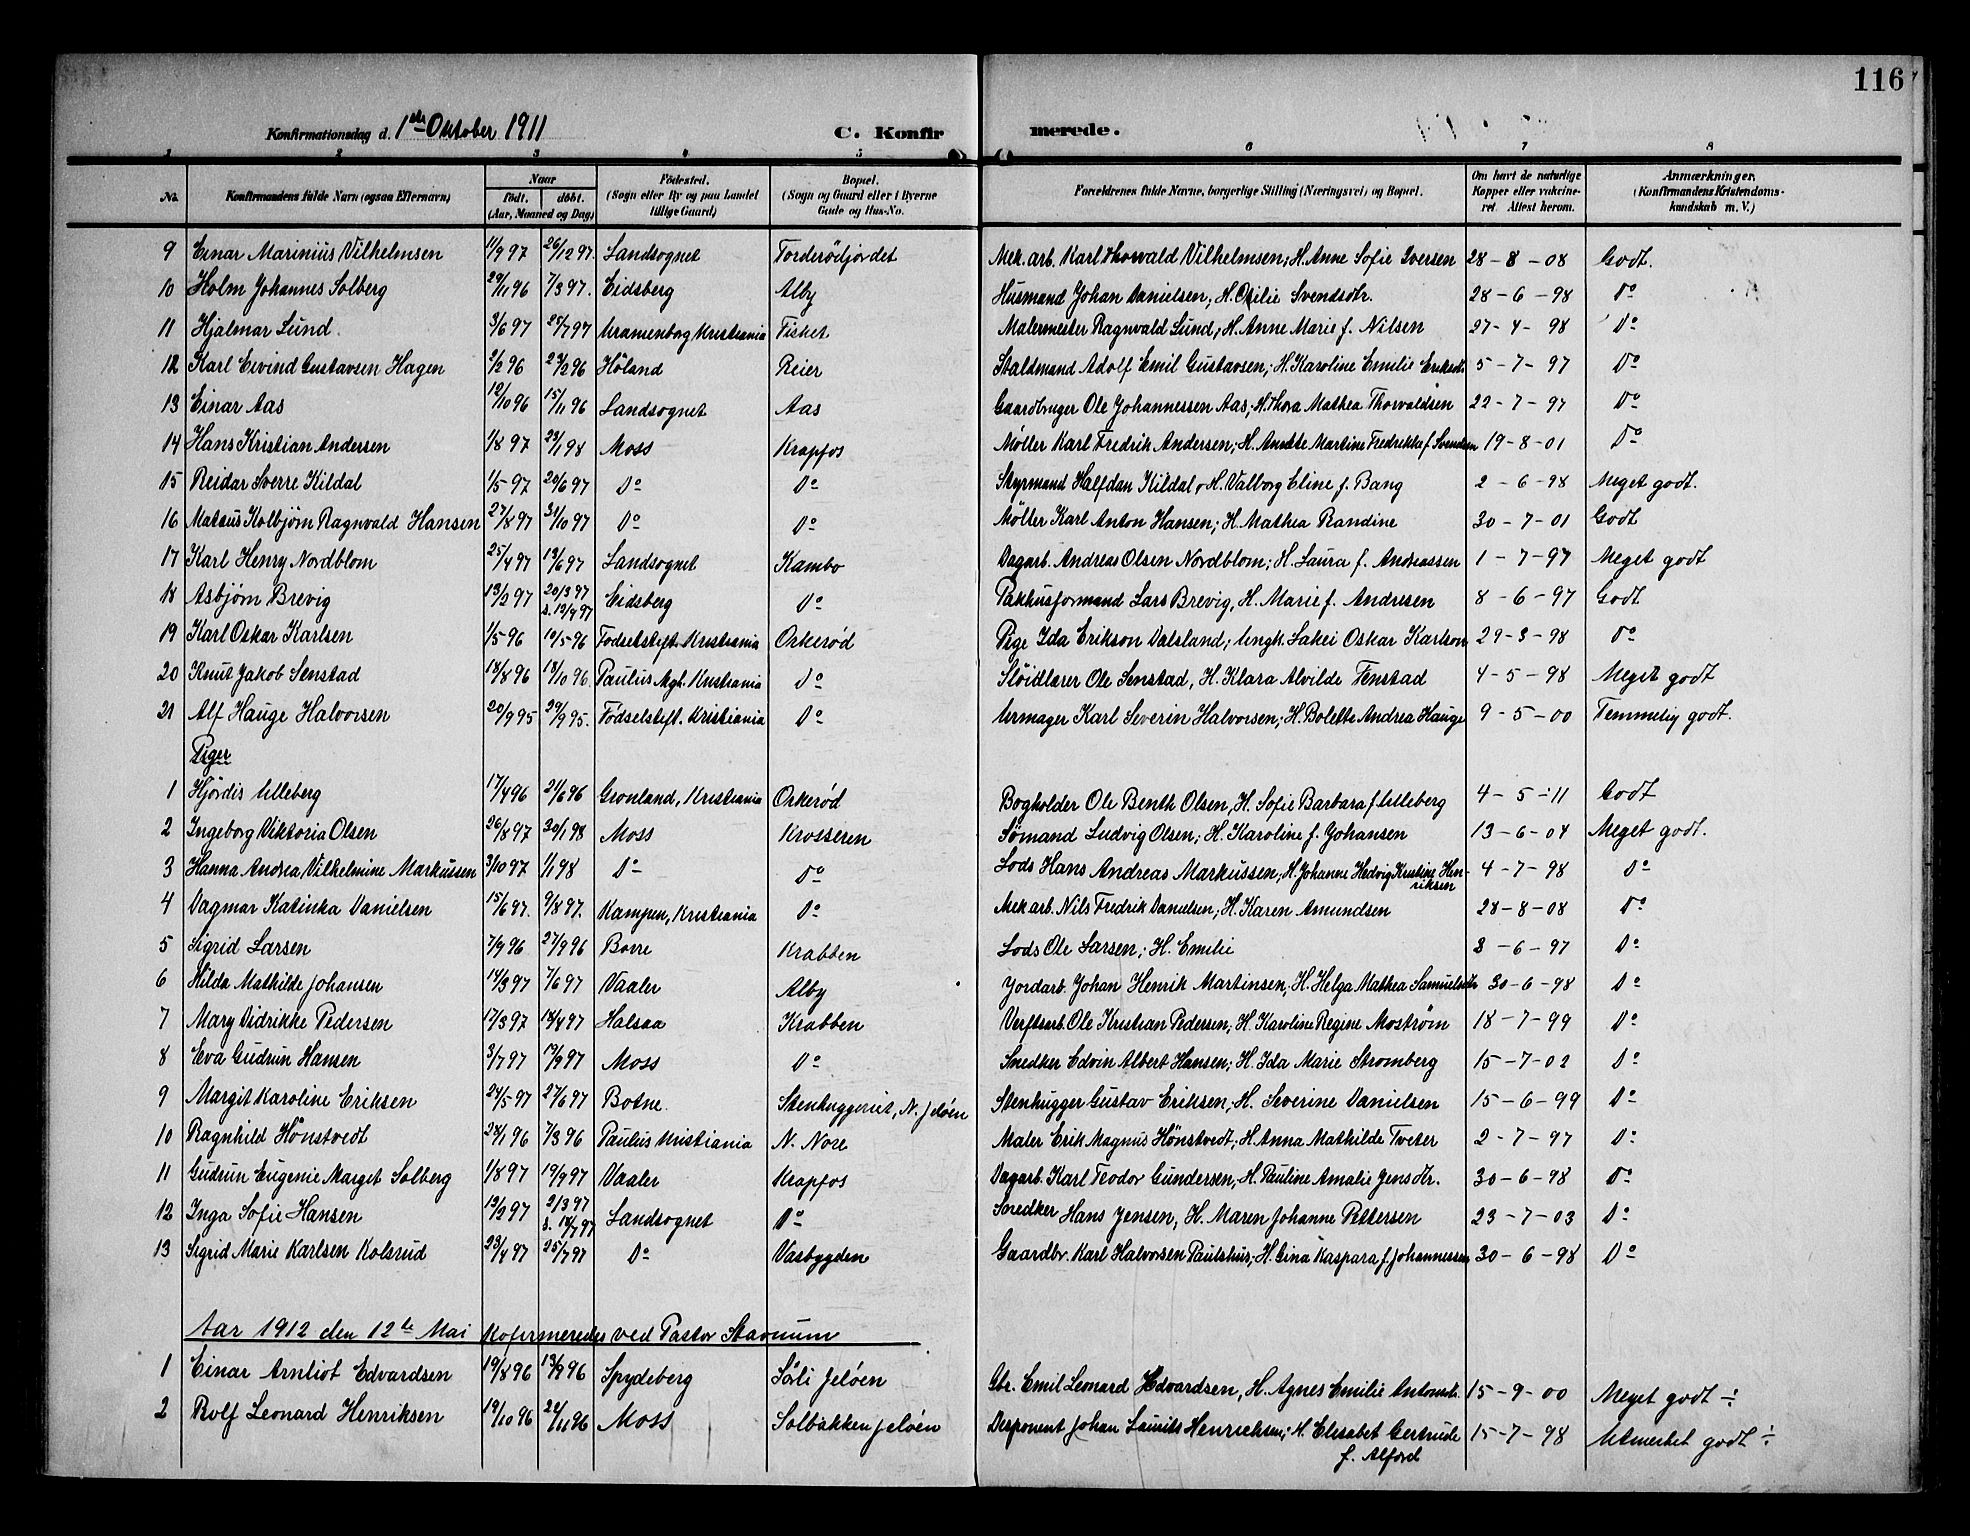 116
Konfirmationsdag d. 1ste Oktober 1911 C. Konfirmerede.
1 2 3 4 5 6 7 8
No. Konfirmandens fulde Navn (ogsaa Efternavn) Naar født. døbt. (Aar, Maaned og Dag) Fødested. (Sogn eller By og paa Landet tillige Gaard) Bopæl. (Sogn og Gaard eller i Byerne Gade og Hus-No. Forældrenes fulde Navne, borgerlige Stilling (Næringsvei) og Bopæl. Om havt de naturlige Kopper eller vakcineret. Attest herom. Anmærkninger. (Konfirmandens Kristendomskundskab m. V.)
9 Einar Marinius Vilhelmsen 11/9 97 26/12 97 Landsognet Torderødjordet Mek. arb. Karl Thorvald Vilhelmsen; H. Anne Sofie Iversen 28-8-08 Godt.
10 Holm Johannes Solberg 29/11 96 7/3 97. Eidsberg Alby Husmand Johan Danielsen; H. Otilie Svendsdtr. 28-6-98 Do
11 Hjalmar Lund. 3/6 97 25/7 97 Uranienborg Kristiania Fisket Malermester Ragnvald Lund; H. Anne Marie f. Nilsen 27-4-98 Do
12 Karl Eivind Gustavsen Hagen 2/2 96 23/2 96 Höland Reier Staldmand Adolf Emil Gustavsen; H. Karoline Emilie Eriksdt. 5-7-97 Do
13 Einar Aas 12/10 96 15/11 96 Landsognet Aas Gaardbruger Ole Johannessen Aas; H. Thora Mathea Thorvaldsen 22-7-97 Do
14 Hans Kristian Andersen 1/8 97 23/1 98 Moss Krapfos Møller Karl Fredrik Andersen; H. Anette Martine Fredrikke f. Svendsen 19-8-01 Do
15 Reidar Sverre Kildal 1/5 97 20/6 97 Do Do Styrmand Halfdan Kildal; H. Valborg Eline f. Bang 2-6-98 Meget godt.
16 Mataus Kolbjørn Ragnvald Hansen 27/8 97 31/10 97 Do Do Møller Karl Anton Hansen; H. Mathea Randine 30-7-01 Godt
17 Karl Henry Nordblom 25/4 97 19/6 97 Landsognet Kambo Dagarb. Andreas Olsen Nordblom; H. Laura f. Andreassen 1-7-97 Meget godt
18 Asbjørn Brevig 13/2 97 20/3 97 s. 12/9 97 Eidsberg Do Pakhusformand Lars Brevig, H. Marie f. Andresen 8-6-97 Godt
19 Karl Oskar Karlsen 1/5 96 10/5 96 Fødselstift. Kristiania Orkerød Pige Ida Erikson Dalsland; Ungk. Lakei Oskar Karlson 29-3-98 Do
20 Knut Jakob Senstad 18/8 96 18/10 96. Paulus Mgh. Kristiania Do Sløidlærer Ole Senstad, H. Klara Alvilde Fenstad 4-5-98 Meget godt
21 Alf Hauge Halvorsen 20/9 95 29/9 95. Fødselstift. Kristiania Do Urmager Karl Severin Halvorsen; H. Bolette Andrea Hauge 9-5-00 Temmelig godt.
Piger
1 Hjördis Ulleberg 17/4 96 21/6 96 Grønland, Kristiania Orkerød Bogholder Ole Benth Olsen, H. Sofie Barbara f. Ulleberg 4-5-11 Godt
2 Ingeborg Viktoria Olsen 26/8 97 30/1 98 Moss Krosseren Sømand Ludvig Olsen; H. Karoline f. Johansen 13-6-04 Meget godt.
3 Hanna Andrea Vilhelmine Markussen 3/10 97 1/1 98 Do Do Lods Hans Andreas Markussen; H. Johanne Hedvig Kristine Henriksen 4-7-98 Do
4 Dagmar Katinka Danielsen 15/6 97. 9/8 97. Kampen, Kristiania Do Mek arb. Nils Fredrik Danielsen; H. Karen Amundsen 28-8-08 Do
5 Sigrid Larsen 7/9 96 27/9 96 Borre Krabben Lods Ole Larsen; H. Emilie 3-6-97 Do
6 Hilda Mathilde Johansen 14/3 97 7/6 97 Vaaler Alby Jordarb. Johan Henrik Martinsen, H. Helga Mathea Samuelsdtr 30-6-98 Do
7 Mary Didrikke Pedersen 17/3 97 18/4 97 Halsaa Krabben Verftsarb. Ole Kristian Pedersen; H. Karoline Regine Mostrøm 18-7-99 Do
8 Eva Gudrun Hansen 3/7 97 19/9 97 Moss Do Snedker Edvin Albert Hansen; H. Ida Marie Strømberg 15-7-02 Do
9 Margit Karoline Eriksen 24/5 97 27/6 97 Botne Stenhuggeriet, N. Jeløen Stenhugger Gustav Eriksen; H. Severine Danielsen 15-6-99 Do
10 Ragnhild Hönstvedt 24/1 96 7/3 96 Paulus Kristiania N. Nore Maler Erik Magnus Hönstvedt; H. Anna Mathilde Tveter 2-7-97 Do
11 Gudrun Eugenie Marget Solberg 1/8 97 19/9 97 Vaaler Krapfos Dagarb. Karl Teodor Gundersen, H. Pauline Amalie Jensdtr. 30-6-98 Do
12 Inga Sofie Hansen 12/2 97 2/3 97 s. 18/7 97 Landsognet Do Snedker Hans Jensen, H. Maren Johanne Pettersen 23-7-03 Do
13 Sigrid Marie Karlsen Kolsrud 23/4 97 25/7 97 Do Vasbygden Gaardbr. Karl Halvorsen Paulshus, H. Gina Kaspara f. Johannessen 30-6-98 Do
Aar 1912 den 12te Mai Kofirmeredes ved Pastor Stavnum
1 Einar Arnliot Edvardsen 19/8 96 13/9 96 Spydeberg Sörli Jeløen Gbr. Emil Leonard Edvardsen, H. Agnes Emilie Antonsdt. 15-9-00 Meget godt ÷
2 Rolf Leonard Henriksen 19/10 96 22/11 96 Moss Solbakken Jeløen Disponent Johan Laurits Henrichsen; H. Elisabet Gertrude f. Alford 15-7-98 Utmerket godt ÷